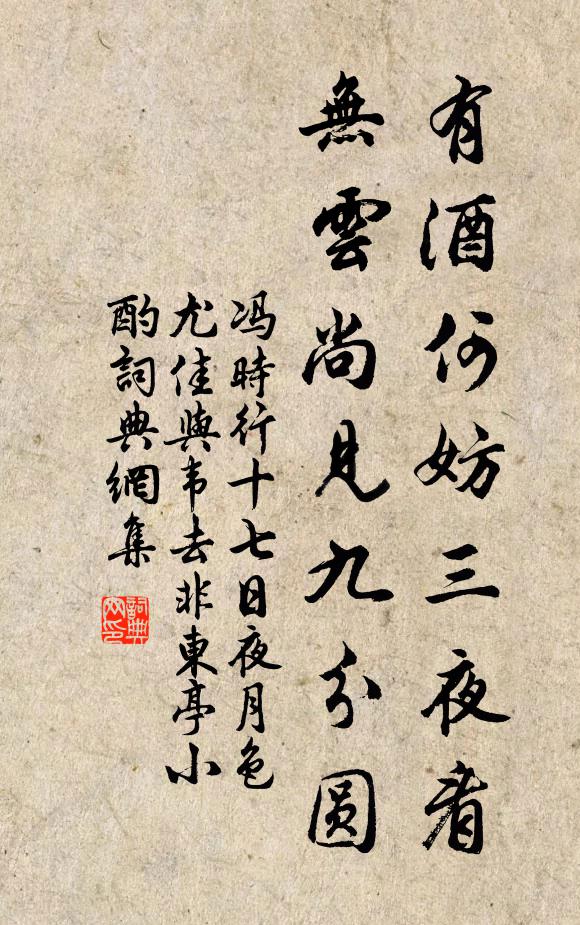 有酒何妨三夜看
無雲尚見九分圆
冯時行十七日夜月色
尤佳與韦去非東亭小
酌詞典網集
詞典網印